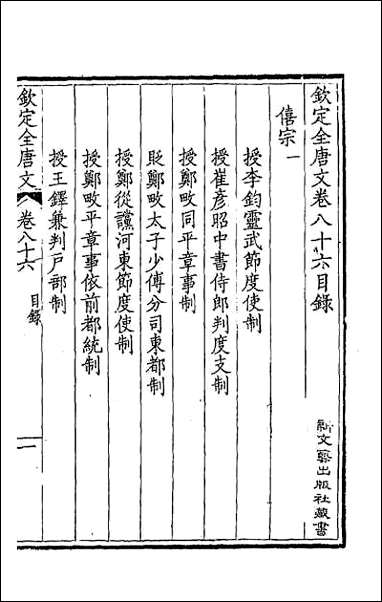 欽定全唐文卷八十六目錄
僖宗一
授李鈞靈武節度使制
授崔彥昭中書侍郎判度支制
授鄭畋同平章事制
貶鄭畋太子少傅分司東都制
授鄭從讜河東節度使制
授鄭畋平章事依前都統制
授王鐸兼判戶部制
欽定全唐文
卷八十六
目錄
一
新文藝出版社藏書